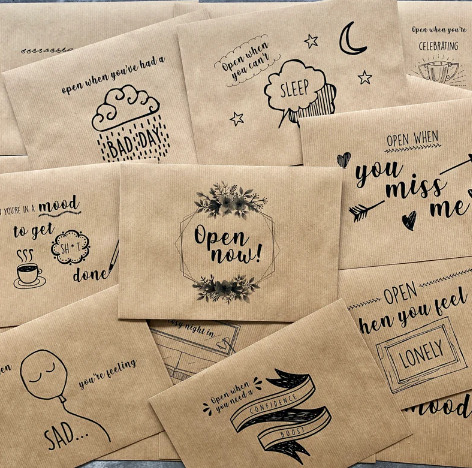 open when you've had a
BAD DAY
Open when
you can't
SLEEP
Open when you're
CELEBRATING
OPEN WHEN
you
miss
me
YOU'RE IN A mood
to get
SH*T
done
Open
now!
OPEN
when you feel
LONELY
you're feeling
SAD...
night in...
Open when
you need a
CONFIDENCE
BOOST
mood